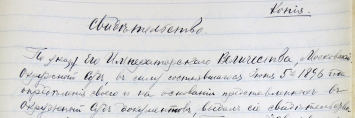 Копія.
Свидѣтельство
По указу Его Императорскаго Величества, Московскій
Окружной Судъ въ силу состоявшагося Іюня 5го 1896 года
опредѣленія своего и на основаніи представленныхъ въ
Окружный Судъ документовъ, выдалъ сіе свидѣтельство